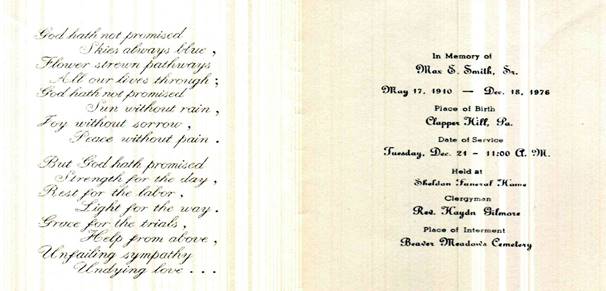 God hath not promised
Skies always blue,
Flower strewn pathways
All our lives through;
God hath not promised
Sun without rain,
Joy without sorrow,
Peace without pain.
But God hath promised
Strength for the day,
Rest for the labor,
Light for the way.
Grace for the trials,
Help from above,
Unfailing sympathy
Undying love . . .
In Memory of
Max E. Smith, Sr.
May 17, 1910 — Dec. 18, 1976
Place of Birth
Clapper Hill, Pa.
Date of Service
Tuesday, Dec. 21 - 11:00 A. M.
Held at
Sheldon Funeral Home
Clergyman
Rev. Haydn Gilmore
Place of Interment
Beaver Meadows Cemetery